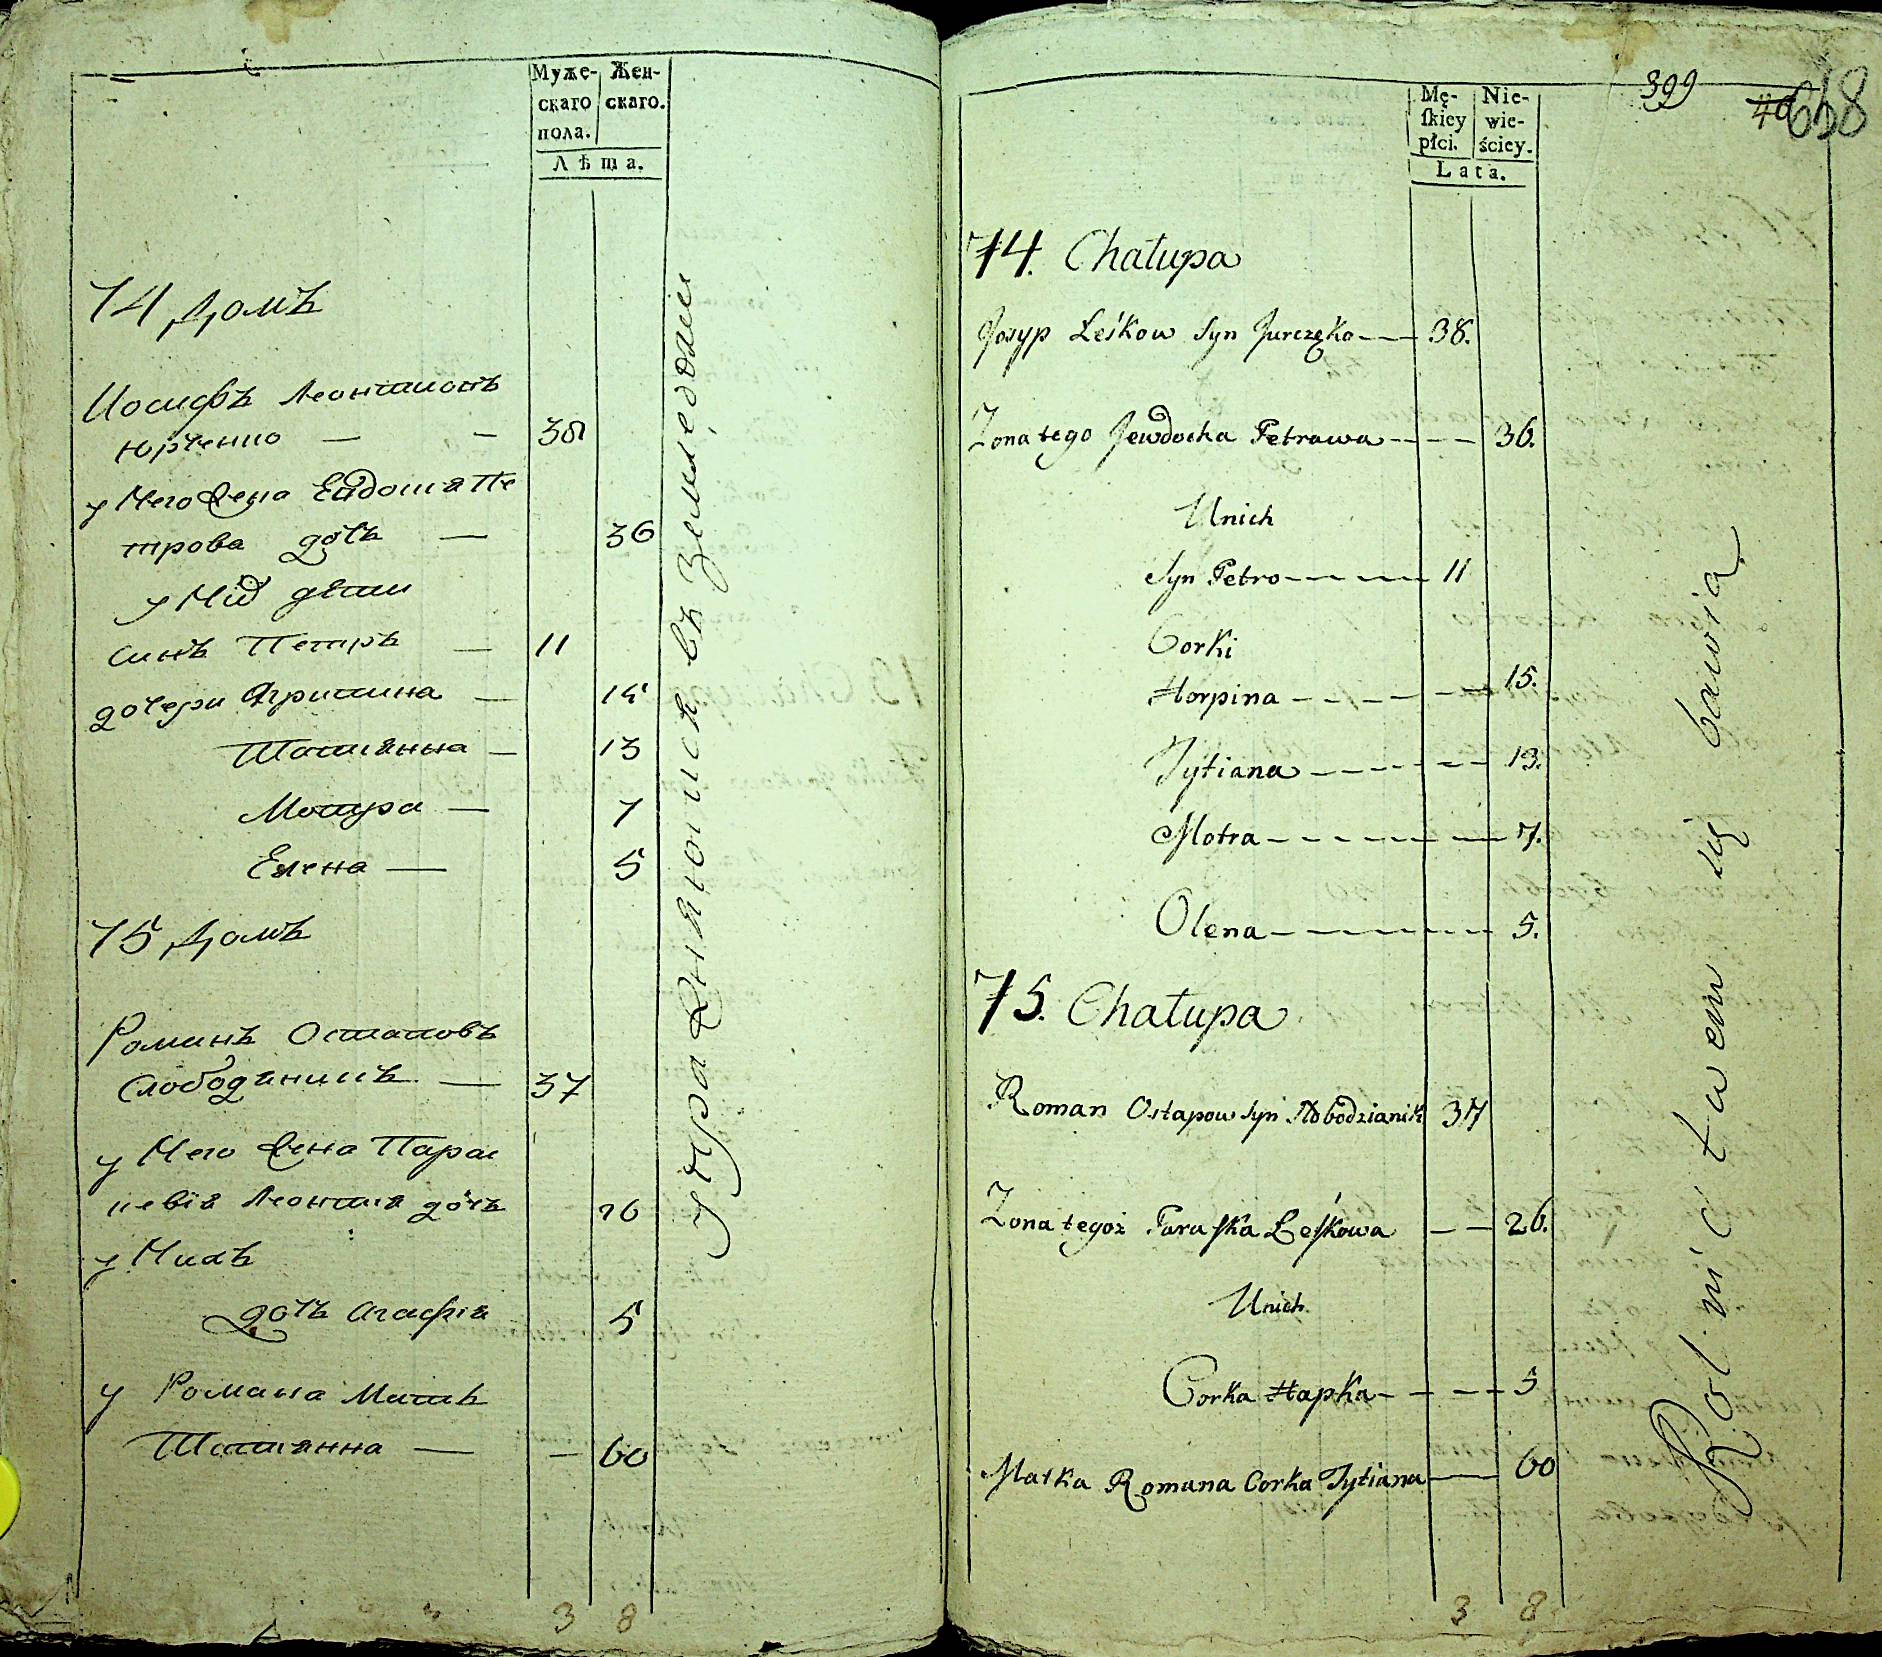 Муже-
скаго
пола.
Жен-
скаго.
Лѣта.
74 Домъ
Иосифъ Леонтиовъ
Юрченко — — 38
у Него жена Евдокия Пе
трова дочь — 36
у Них дѣти
Синъ Петръ — 11
дочери Агрипина — 15
Татиянна — 13
Мотря — 7
Елена — 5
75 Домъ
Романъ Остаповъ
Слободяникъ — 37
у Него жена Парас
кевія Леонтия дочь 26
у Нихъ
дочь Агафія 5
у Романа Мать
Татиянна — — 60
упражняются въ земледелии
3 8
399
658
Mę-
ſkiey
płci.
Nie-
wie-
ściey.
Lata.
74. Chałupa
Josyp Leśkow Syn Jurczęko — — 38.
Zona tego Jewdocha Petrowa — — — 36.
Unich
Syn Petro — — — — 11
Corki
Horpina — — — — — 15.
Tytiana — — — — — 13.
Motra — — — — — 7.
Olena — — — — — 5.
75. Chałupa
Roman Ostapow Syn Słobodzianik 37
Zona tegoż Paraſka Leſkowa — — 26.
Unich
Corka Hapka — — — 5
Matka Romana Corka Tytiana — 60
Rolnictwem się bawią
3 8